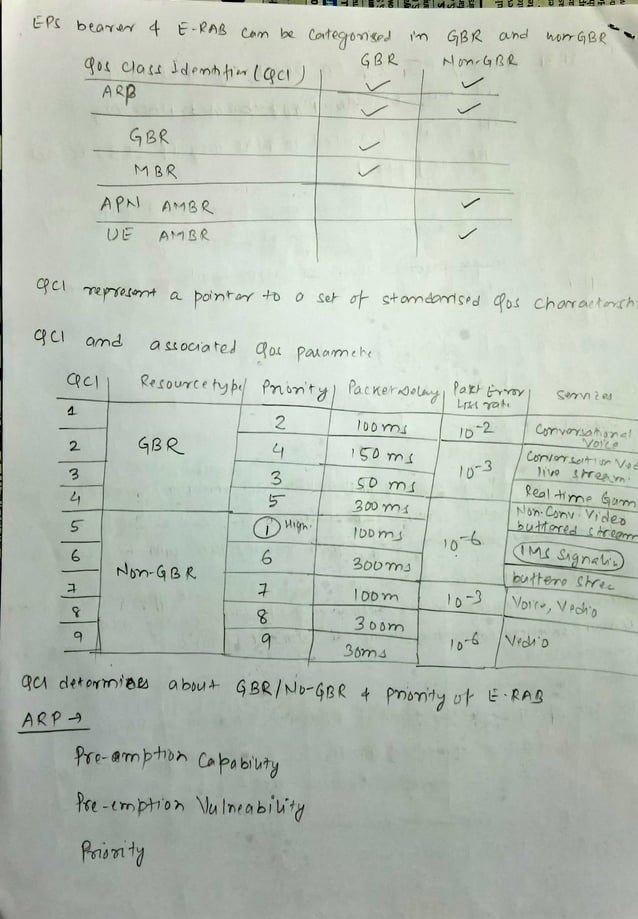 EPS bearer & E-RAB can be Categorised in GBR and non GBR
Qos Class Identifier (QCI) GBR Non-GBR
ARP ✓ ✓
✓ ✓
GBR ✓
MBR ✓
APN AMBR ✓
UE AMBR ✓
QCI represent a pointer to a set of standardised Qos charactersti
QCI and associated Qos paramete
QCI Resource type Priority Packet Delay Pakt Error Loss rate Servizes
1 GBR 2 100ms 10-2 Conversational Voice
2 4 150 ms 10-3 Conversation Voe live stream
3 3 50 ms Real time Gam
4 5 300 ms 10-6 Non-Conv. Video buttared stream
5 Non-GBR 1 High. 100ms IMS Signalin
6 6 300ms buttero strec
7 7 100m 10-3 Voice, Vedio
8 8 300m 10-6 Vedio
9 9 30ms
QCI determines about GBR/No-GBR & priority of E-RAB
ARP →
Pre-amption Capability
Pre-emption Vulneability
Priority